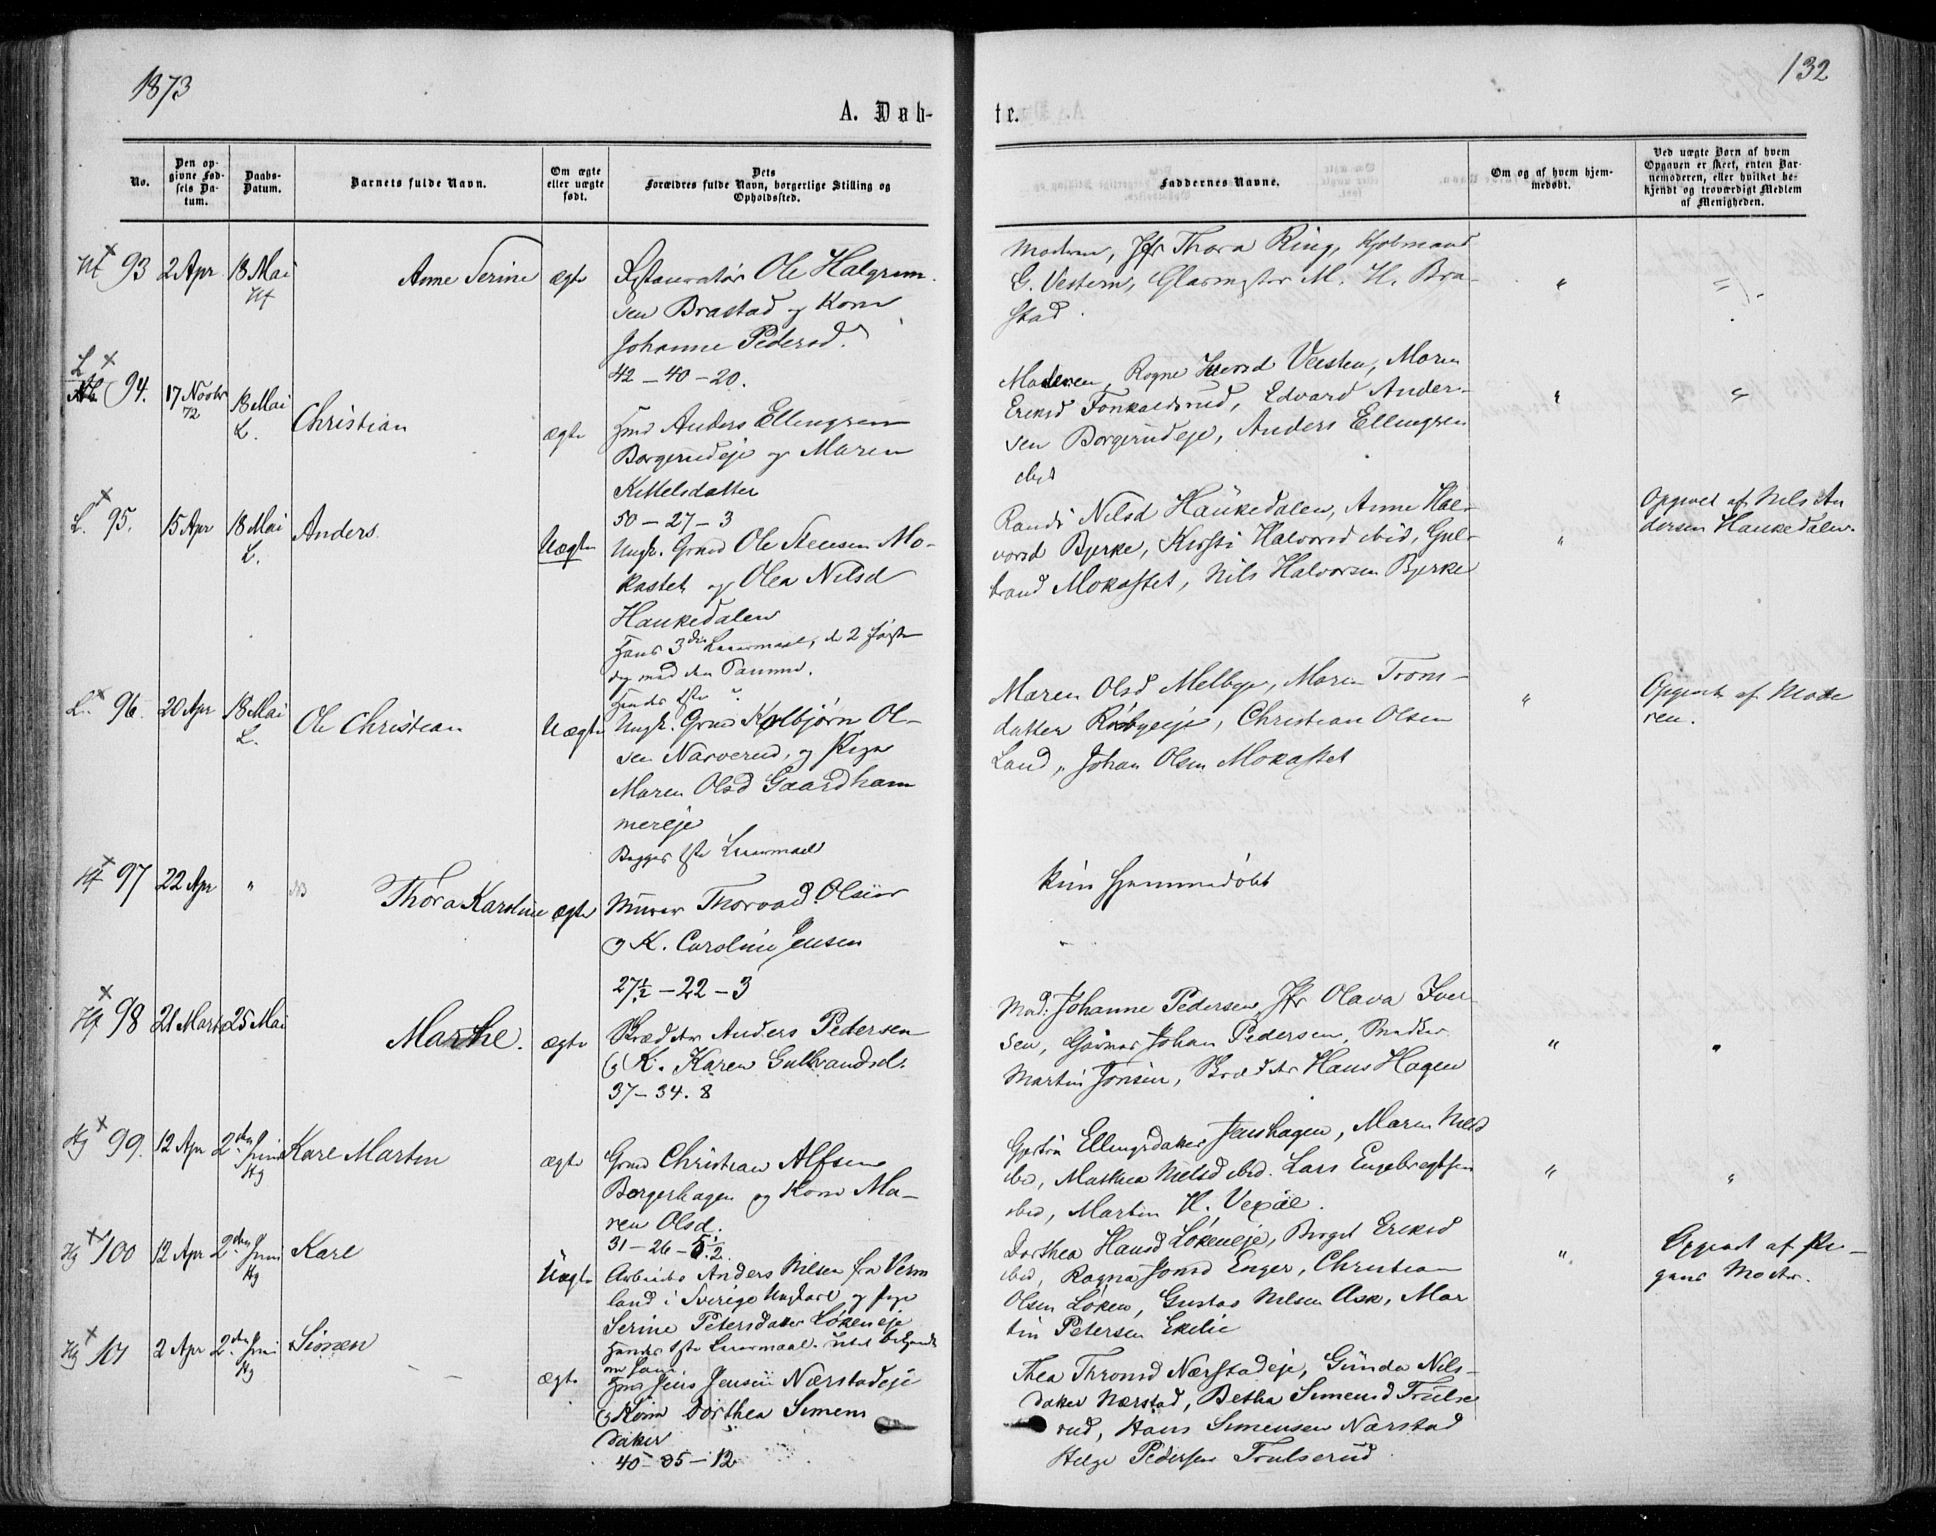 1873
132
A. Døb-
te.
No.
Den op-
givne Fød-
sels Da-
tum.
Daabs-
Datum.
Barnets fulde Navn.
Om ægte
eller uægte
født.
Dets
Forældres fulde Navn, borgerlige Stilling og
Opholdssted.
Faddernes Navne.
Om og af hvem hjem-
medøbt.
Ved uægte Børn af hvem
Opgaven er skeet, enten Bar-
nemoderen, eller hvilket be-
kjendt og troværdigt Medlem
af Menigheden.
93 2 Apr 18 Mai
Hf
Anne Serine ægte
Restauratør Ole Halgrim
sen Brastad og Kone
Johanne Pedersd.
42 - 40 - 20.
Moderen, Jfr Thora Ring, Kjøbmand
G. Vestern, Glarmester M. H. Bra-
stad.
"
L
94. 17 Novbr
72
18 Mai
L.
Christian ægte
Hmd Anders Ellingsen
Borgerudeje og Maren
Kittelsdatter
50 - 27 - 3
Moderen, Ragne Iversd Veisten, Maren
Eriksd Fonkalsrud, Edvard Ander-
sen Borgerudeje, Anders Ellingsen
ibid
"
"
L. 95. 15 Apr 18 Mai
L.
Anders. Uægte
Ungk. Grmd Ole Steensen Mo-
kastet og Olea Nilsd
Haukedalen
Hans 3die Leiermaal, de 2 første
og med den Samme.
Hendes 1ste "
Randi Nilsd Haukedalen, Anne Hal-
vorsd Bjerke, Kirsti Halvorsd ibid, Gul-
brand Mokastet, Nils Halvorsen Bjerke
"
Opgivet af Nils An
dersen Haukedalen.
L. 96. 20 Apr 18 Mai
L.
Ole Christian Uægte
Ungk. Grmd Kolbjørn Ol-
sen Narverud, og Pige
Maren Olsd Gaardham
mereje
Begges 1ste Leiermaal
Maren Olsd Melbye, Maren Trons-
datter Risbyeje, Christian Olsen
Land, Johan Olsen Mokastet
"
Opgivet af Mode
ren.
Hf 97 22 Apr " NB
Thora Karoline ægte
Murer Thorvad Olsen
og K. Caroline Jensen
27½ - 22 - 3
kun hjemmedøbt
Hf 98 21 Marts 25 Mai
Marthe. ægte
Skrædder Anders Pedersen
og K. Karen Gulbrandsd.
37 - 34. 8
Mod: Johanne Pedersen, Jfr Olava Iver
sen, Garver Johan Pedersen, Snedker
Martin Jonsen, Skrædder Hans Hagen
"
"
Hg 99. 12 Apr 2den Juni
Hg
Karl Martin ægte
Grmd Christian Alfsen
Borgerhagen og Kone Ma-
ren Olsd.
31 - 26 - 5½.
Gjertru Ellingsdatter Jenshagen, Maren Nilsd
ibid, Mathea Nilsd ibid. Lars Engebregtsen
ibid, Martin H. Vexal.
"
"
Hg 100 12 Apr 2den Juni
Hg
Karl Uægte
Arbeider Anders Nilsen fra Verm
land i Sverige Ungkarl og Pige
Serine Petersdatter Løkeneje
Hendes 1ste Leiermaal. Intet bekjendt
om ham
Dorthea Hansd Løkeneje, Berget Eriksd
ibid, Ragna Jonsd Enger, Christian
Olsen Løken, Gustav Nilsen Ask, Mar
tin Petersen Ekelie
"
Opgivet af Pi-
gens Moder.
Hg 101 2 Apr 2den Juni
Hg
Simen ægte
Hmd Jens Jensen Nærstadeje
og Kone Dorthea Simens
datter
40 - 35 - 12
Thea Thronsd Nærstadeje, Gunda Nils-
datter Nærstad, Betha Simensd Trulse
rud, Hans Simensen Nærstad
Helge Pedersen Trulserud